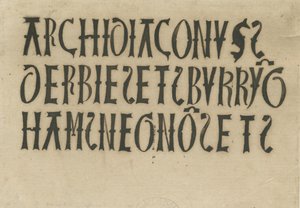 ARCHIDIACONVS:
DERBIE:ET:BVRRỸG
HAM:NECNÕ:ET: